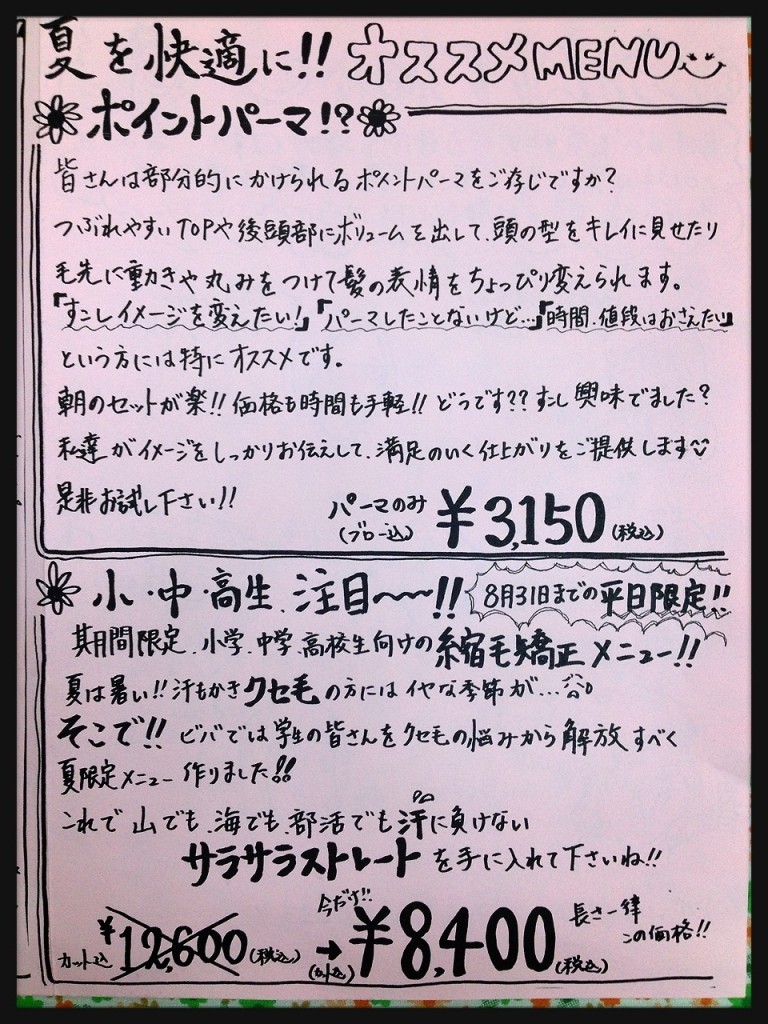 夏を快適に!! オススメMENU
ポイントパーマ!?
皆さんは部分的にかけられるポイントパーマをご存じですか?
つぶれやすいTOPや後頭部にボリュームを出して、頭の型をキレイに見せたり
毛先に動きや丸みをつけて髪の表情をちょっぴり変えられます。
「すこしイメージを変えたい!」「パーマしたことないけど…」「時間、値段はおさえたい」
という方には特にオススメです。
朝のセットが楽!! 価格も時間も手軽!! どうです?? すこし興味でました?
私達がイメージをしっかりお伝えして、満足のいく仕上がりをご提供します
是非お試し下さい!!
パーマのみ ¥3,150(税込)
(ブロー込)
小・中・高生、注目〜〜!! 8月31日までの平日限定!!
期間限定、小学、中学、高校生向けの縮毛矯正メニュー!!
夏は暑い!! 汗もかきクセ毛の方にはイヤな季節が…
そこで!! ビバでは学生の皆さんをクセ毛の悩みから解放すべく
夏限定メニュー作りました!!
これで山でも、海でも、部活でも汗に負けない
サラサラストレートを手に入れて下さいね!!
今だけ!!
カット込 ¥12,600(税込) → ¥8,400(税込)
(カット込)
長さ一律
この価格!!